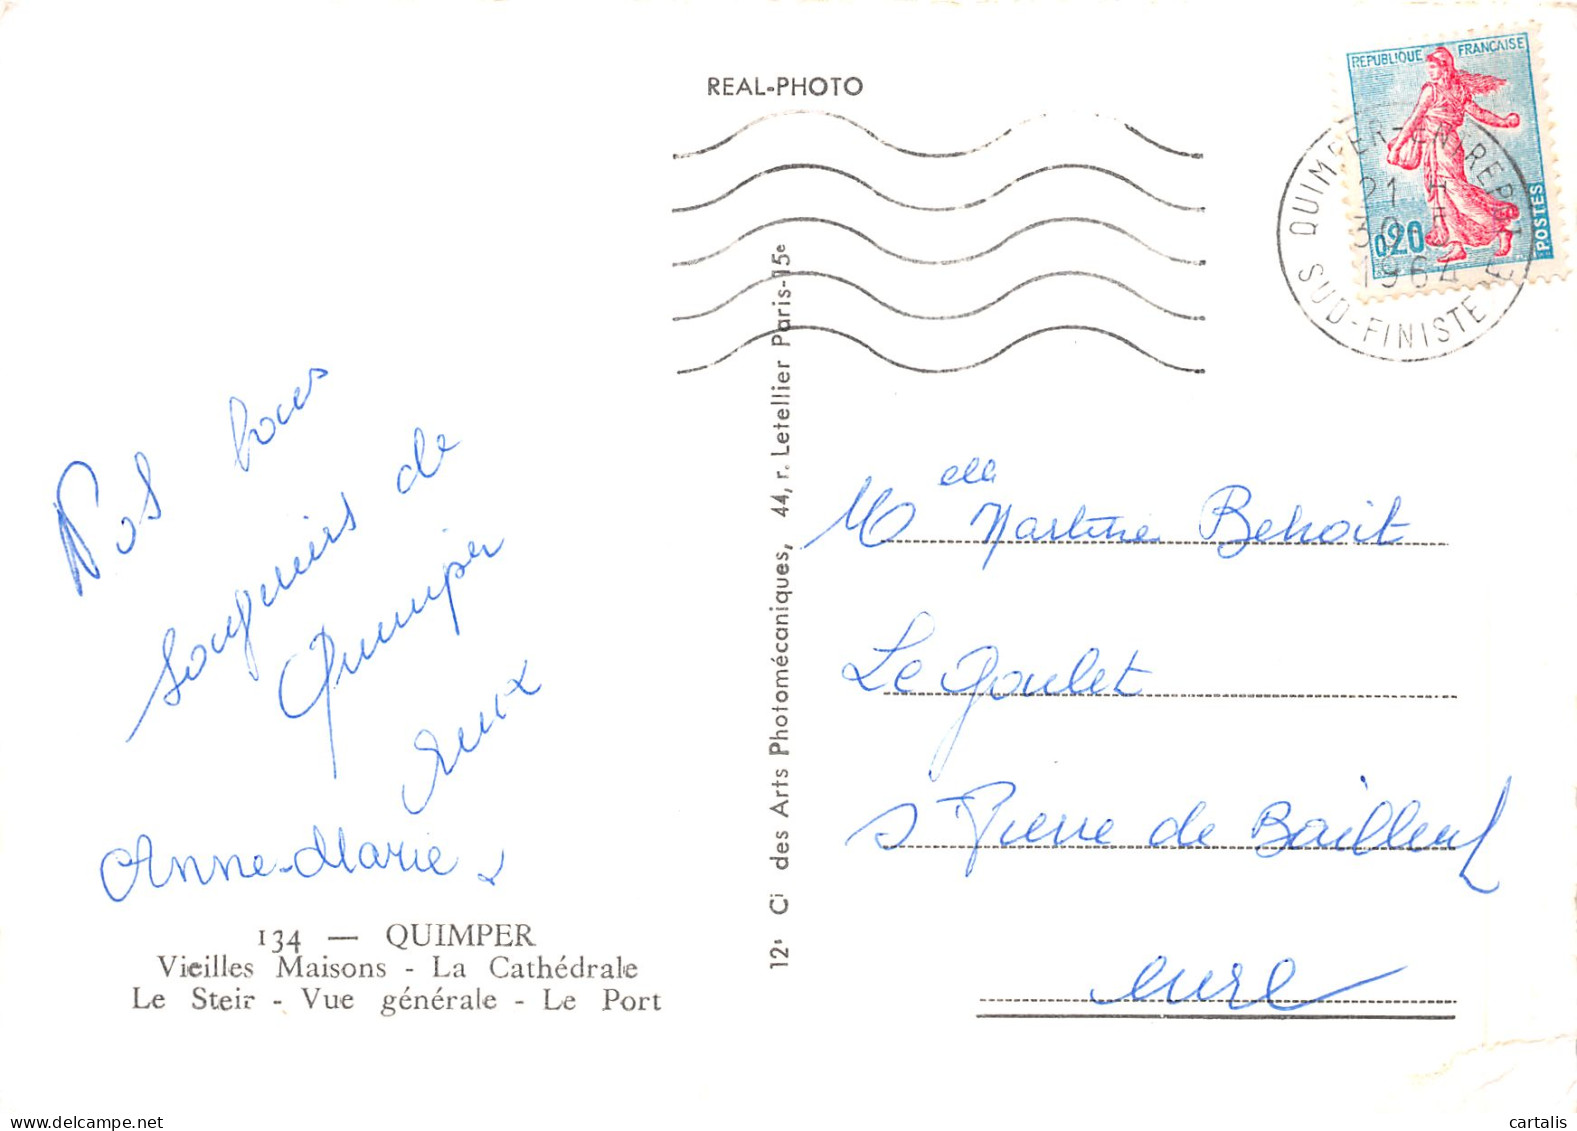 REAL-PHOTO
REPUBLIQUE FRANÇAISE
0,20
POSTES
QUIMPER-ENTREPOT
21 H
30-
1964
SUD-FINISTERE
bons
de
Quimper
Anne-Marie
134 — QUIMPER
Vieilles Maisons - La Cathédrale
Le Steir - Vue générale - Le Port
12e Ci des Arts Photomécaniques, 44, r. Letellier Paris-15e
Melle Martine Benoit
Le Goulet
S Pierre de Bailleul
eure
cartalis